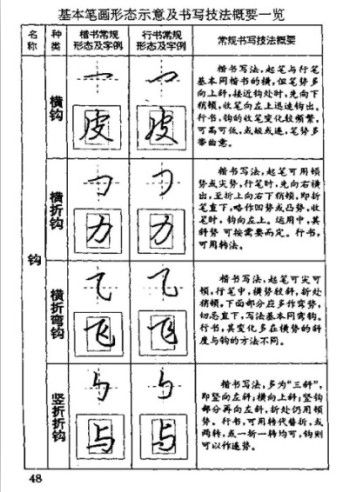 基本笔画形态示意及书写技法概要一览
名称 种类 楷书常规形态及字例 行书常规形态及字例 常规书写技法概要
钩
横钩
皮 皮
楷书写法,起笔与行笔
基本同楷书的横,但笔势多
向上斜,接近钩处时,先向下
稍顿,收笔向左上迅速钩出。
行书,钩的收笔变化较频繁,
可高可低,或缓或速,笔势多
带曲意。
横折钩
力 力
楷书写法,起笔可用顿
势或尖势,行笔时,先向右横
出,至折上向右下稍顿,即折
笔直下,略作凹势或凸势,收
笔时,钩向左上。运用中,其
斜势可按需要而定。行书,
可用转法。
横折弯钩
飞 飞
楷书写法,起笔可尖可
顿,行笔中,横势较斜,折处
稍顿,下面部分应多作弯势,
切忌直下,写法基本同弯钩。
行书,其变化多在横势的斜
度与钩的方法不同。
竖折折钩
与 与
楷书写法,多为“三斜”,
即竖向左斜;横向上斜;竖钩
部分再向左斜,折处仍用顿
势。行书,可用转代替折,或
两转,或一折一转均可,钩则
可以作连势。
48